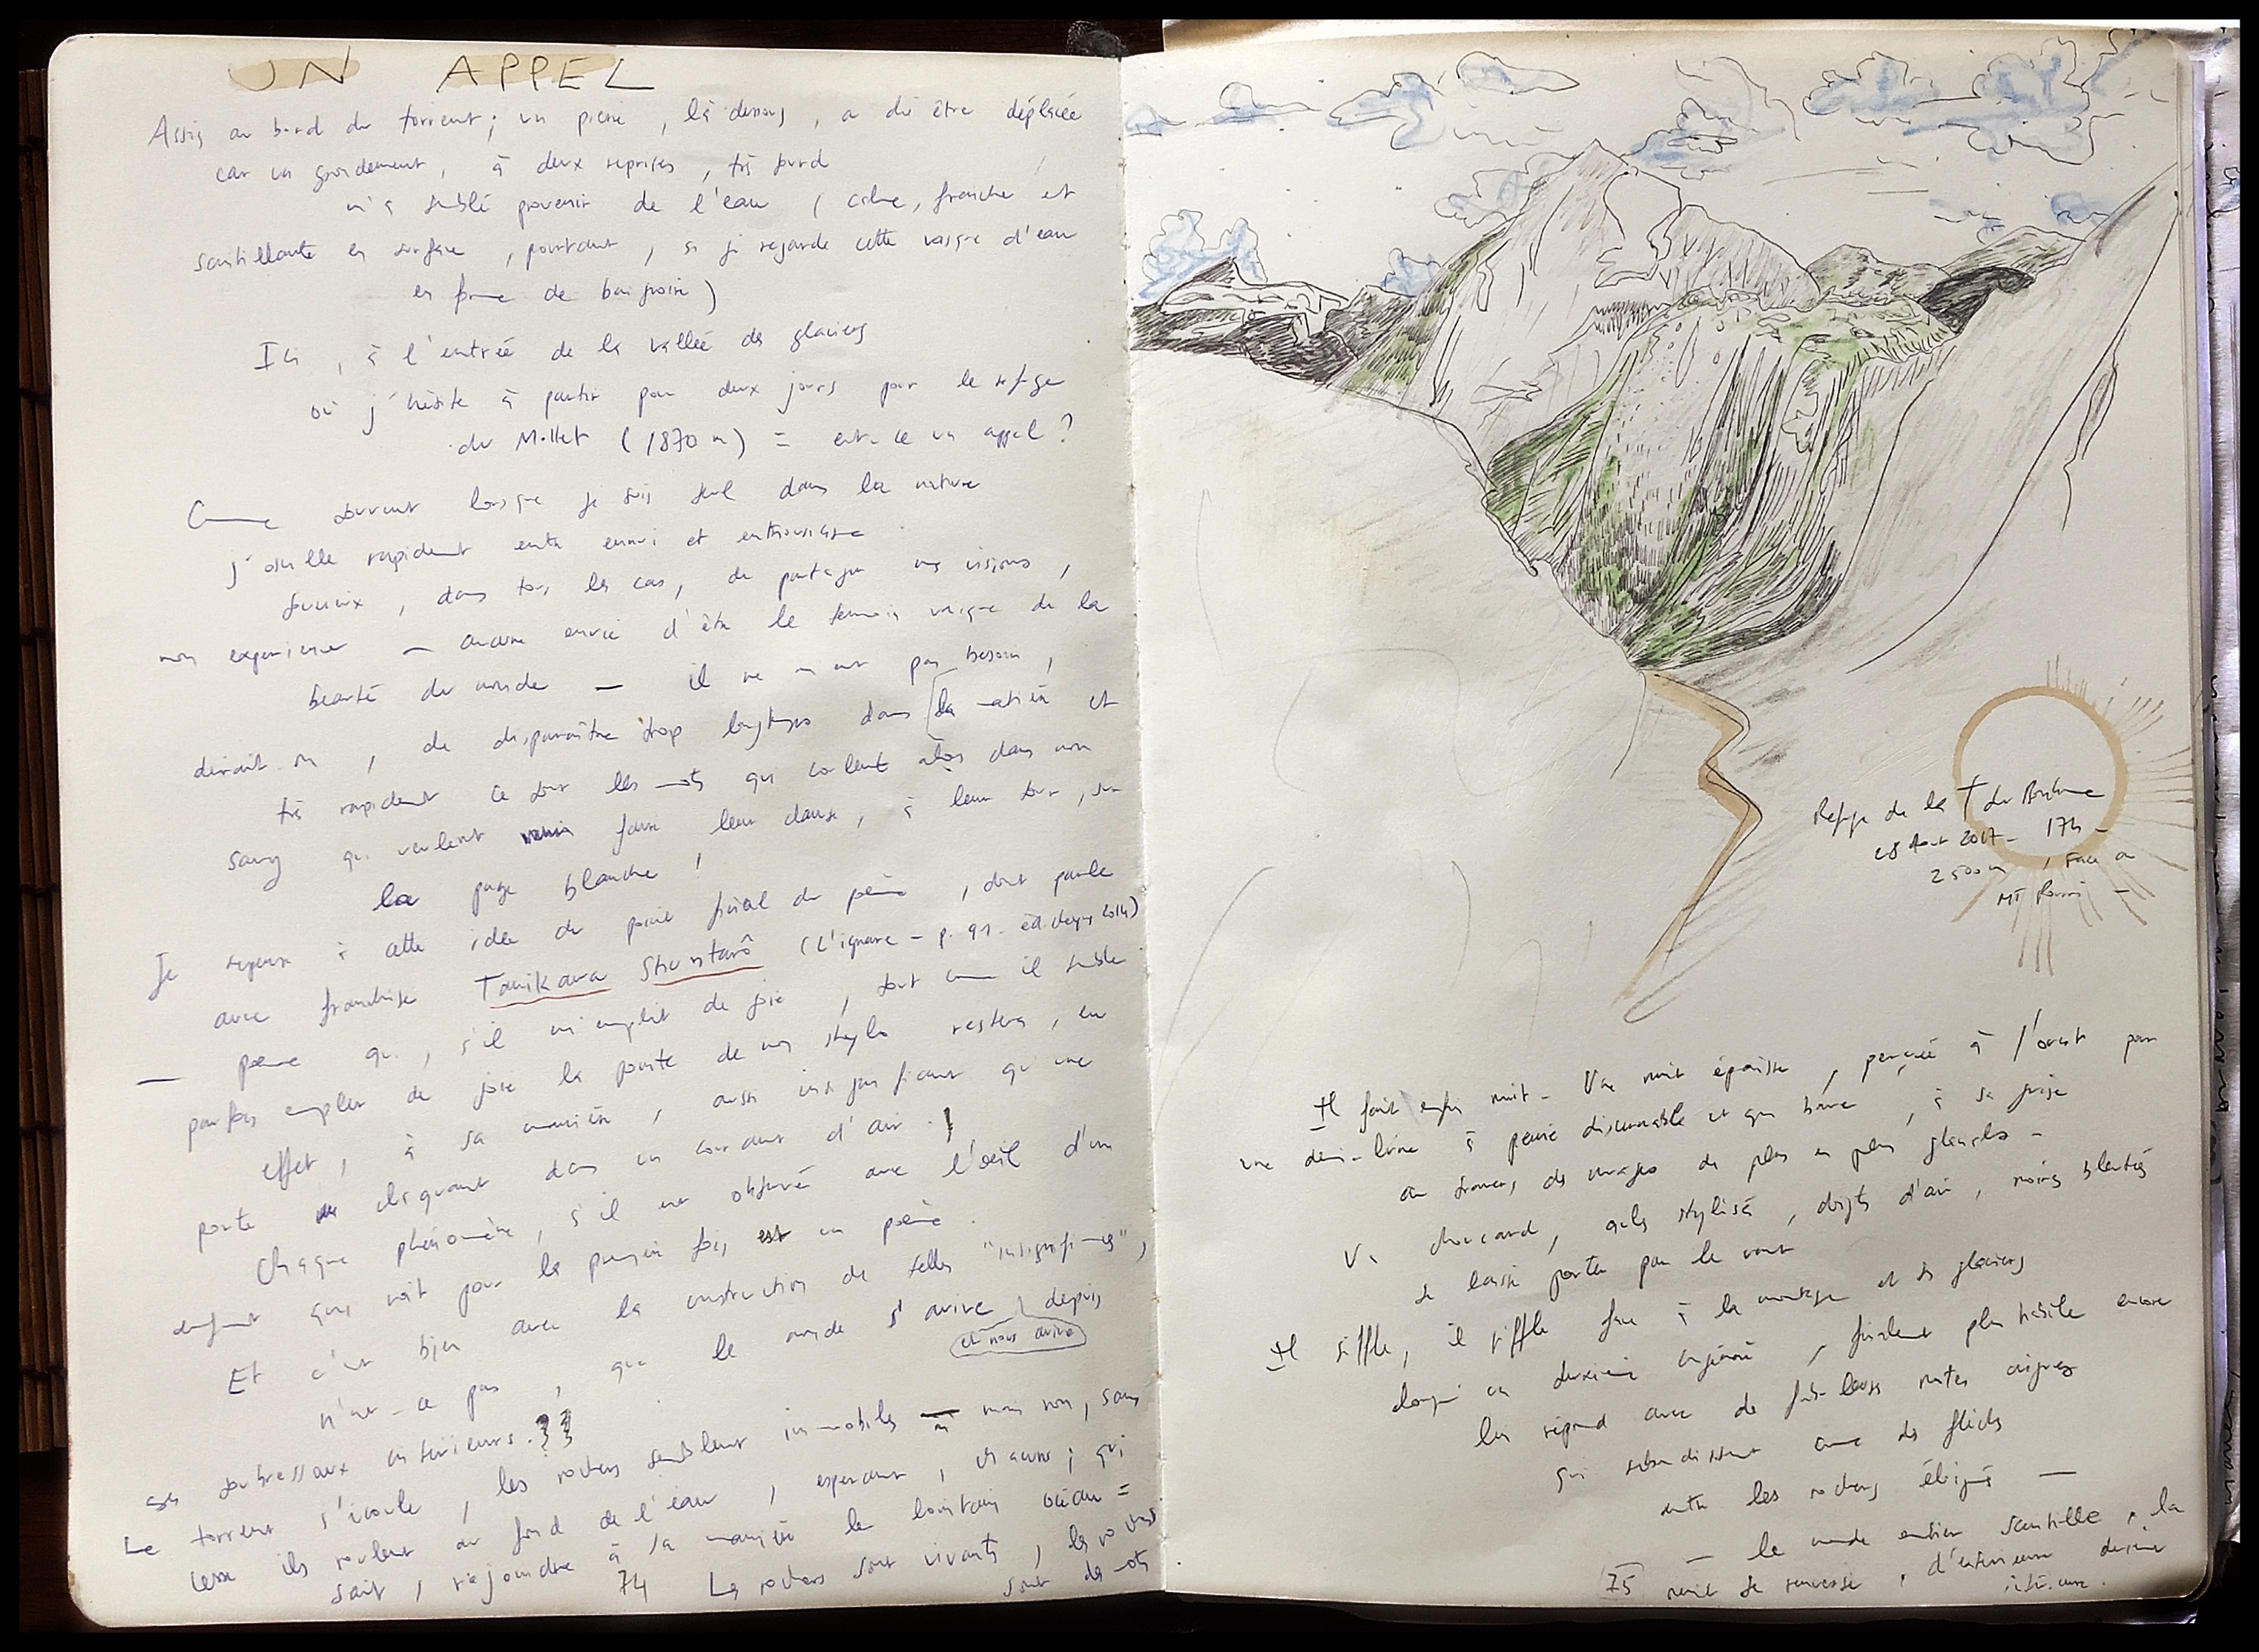 UN APPEL
Assis au bord du torrent ; un pierre, là dessous, a dû être déplacée
car un grondement, à deux reprises, très sourd
m'a semblé provenir de l'eau (calme, fraiche et
scintillante en surface, pourtant, si je regarde cette vasque d'eau
en forme de baignoire)
Ici, à l'entrée de la vallée des glaciers
où j'hésite à partir pour deux jours pour le refuge
du Mollet (1870 m) = est-ce un appel ?
Comme souvent lorsque je suis seul dans la nature
j'oscille rapidement entre ennui et enthousiasme
, dans tous les cas, de partager mes visions,
mon experience — aucune envie d'être le temoin unique de la
beauté du monde — il ne m'est pas besoin,
dirait on, de disparaître trop longtemps dans la matière et
très rapidement ce sont les mots qui coulent alors dans mon
sang qui veulent venir faire leur danse, à leur tour, sur
la page blanche !
Je repense à cette idée du point final du poème, dont parle
avec franchise Tanikawa Shuntarô (L'ignare - p. 91 - éd. cheyne 2014)
— poème qui, s'il m'emplit de joie, tout comme il semble
parfois emplir de joie la pointe de mon stylo restera, en
effet, à sa manière, aussi insignifiant qu'une
porte claquant dans un courant d'air. !
Chaque phénomène, s'il est observé avec l'oeil d'un
enfant qui voit pour la première fois est un poème.
Et c'est bien avec la construction de telles "insignifiances",
n'est-ce pas, que le monde s'avive depuis
et nous avive
ses soubressaux intérieurs. ??
Le torrent s'écoule, les rochers semblent immobiles mais non, sans
cesse ils roulent au fond de l'eau, esperant, chacuns ; qui
sait, rejoindre à sa manière le lointain océan =
74 Les rochers sont vivants, les rochers
sont des mots
Refuge de la
28 Aout 2017 - 17h -
2500 m, Face a
MT Pourri -
Il fait enfin nuit - Une nuit épaisse, percée à l'ouest par
une demi-lune à peine discernable et qui, à sa guise
au travers des nuages de plus en plus glacés -
Un choucard, ailes stylisés, doigts d'air, noirs bleutés
se laisse porter par le vent
Il siffle, il siffle face à la montagne et ses glaciers
un deuxième, finalement plus habile encore
lui répond avec de notes aigues
qui rebondissent comme des flèches
entre les rochers éloignés —
— le monde entier scintille, la
75 nuit se renverse, d'exterieure devient
intérieure.